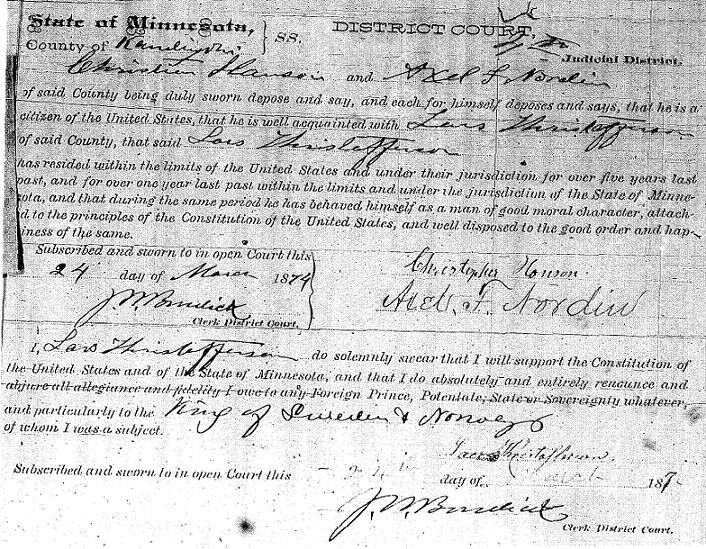 State of Minnesota,
County of Kandiyohi } SS.
DISTRICT COURT,
Judicial District.
Christian Hanson and Axel F Nordin
of said County being duly sworn depose and say, and each for himself deposes and says, that he is a
citizen of the United States, that he is well acquainted with Lars Christofferson
of said County, that said Lars Christofferson
has resided within the limits of the United States and under their jurisdiction for over five years last
past, and for over one year last past within the limits and under the jurisdiction of the State of Minne-
sota, and that during the same period he has behaved himself as a man of good moral character, attach-
d to the principles of the Constitution of the United States, and well disposed to the good order and hap-
iness of the same.
Subscribed and sworn to in open Court this
24 day of 1874
Clerk District Court.
Christopher Honson
Axel. F. Nordin
I, Lars Christofferson do solemnly swear that I will support the Constitution of
the United States and of the State of Minnesota, and that I do absolutely and entirely renounce and
abjure all allegiance and fidelity I owe to any Foreign Prince, Potentate, State or Sovereignty whatever,
and particularly to the King of Sweden & Norway
of whom I was a subject.
Subscribed and sworn to in open Court this 24 day of March 187
Clerk District Court.